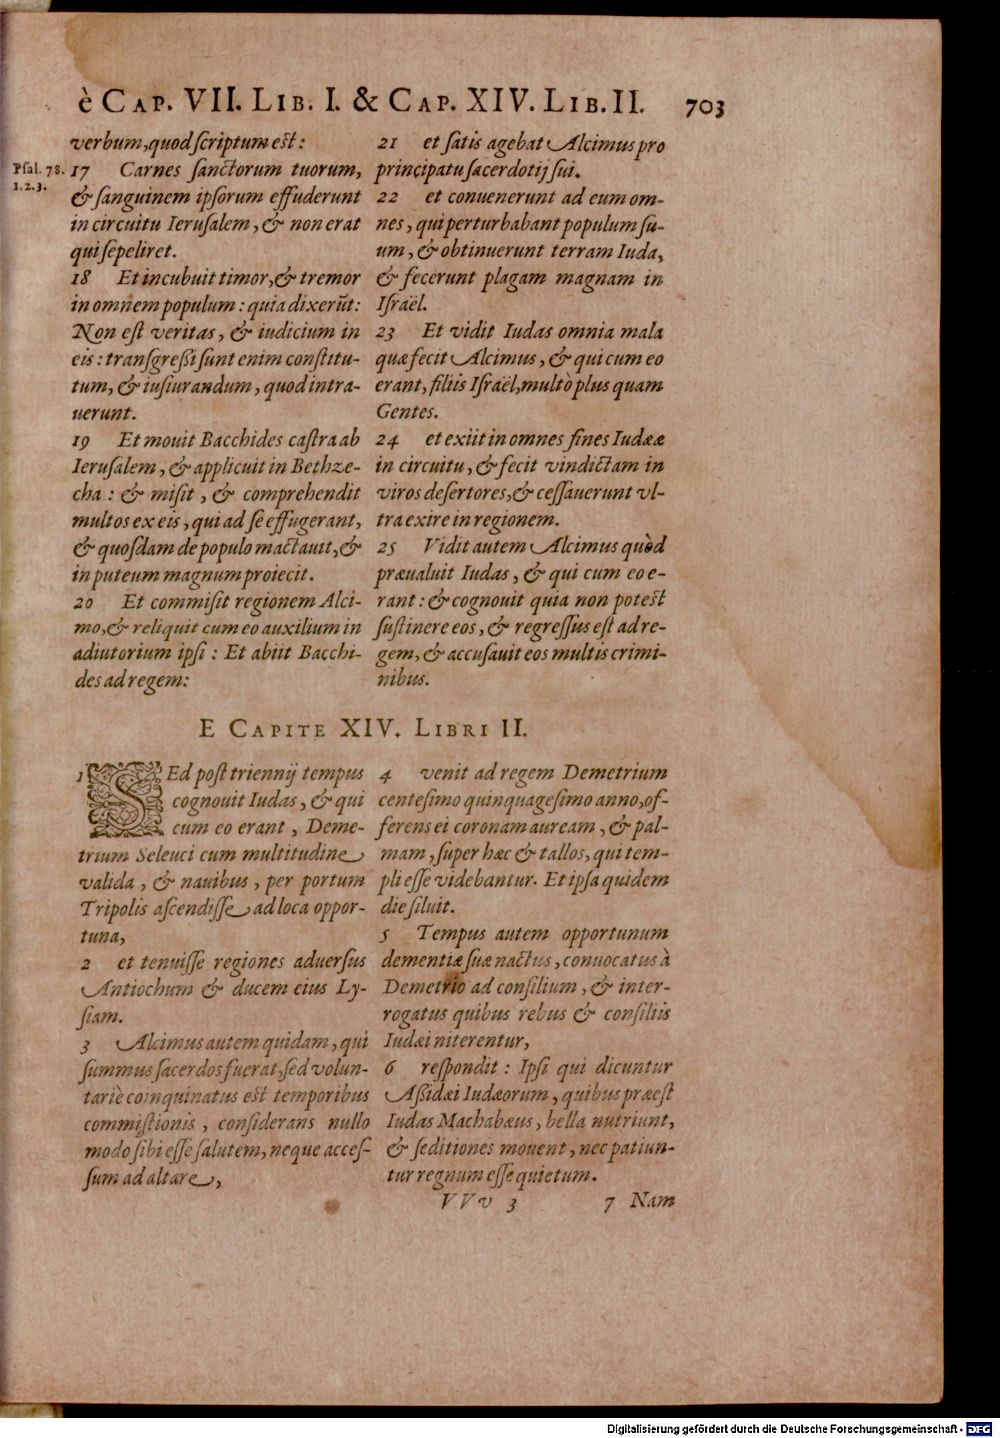 è CAP. VII. LIB. I. & CAP. XIV. LIB. II. 703
verbum, quod scriptum est:
Psal. 78.
1.2.3.
17 Carnes sanctorum tuorum,
& sanguinem ipsorum effuderunt
in circuitu Ierusalem, & non erat
qui sepeliret.
18 Et incubuit timor, & tremor
in omnem populum: quia dixerūt:
Non est veritas, & iudicium in
eis: transgressi sunt enim constitu-
tum, & iusiurandum, quod intra-
uerunt.
19 Et mouit Bacchides castra ab
Ierusalem, & applicuit in Bethze-
cha: & misit, & comprehendit
multos ex eis, qui ad se effugerant,
& quosdam de populo mactauit, &
in puteum magnum proiecit.
20 Et commisit regionem Alci-
mo, & reliquit cum eo auxilium in
adiutorium ipsi: Et abiit Bacchi-
des ad regem:
21 et satis agebat Alcimus pro
principatu sacerdotij sui.
22 et conuenerunt ad eum om-
nes, qui perturbabant populum su-
um, & obtinuerunt terram Iuda,
& fecerunt plagam magnam in
Israël.
23 Et vidit Iudas omnia mala
quæ fecit Alcimus, & qui cum eo
erant, filiis Israël, multò plus quam
Gentes.
24 et exiit in omnes fines Iudææ
in circuitu, & fecit vindictam in
viros desertores, & cessauerunt vl-
tra exire in regionem.
25 Vidit autem Alcimus quòd
præualuit Iudas, & qui cum eo e-
rant: & cognouit quia non potest
sustinere eos, & regressus est ad re-
gem, & accusauit eos multis crimi-
nibus.
E CAPITE XIV. LIBRI II.
1 SEd post triennij tempus
cognouit Iudas, & qui
cum eo erant, Deme-
trium Seleuci cum multitudine
valida, & nauibus, per portum
Tripolis ascendisse ad loca oppor-
tuna,
2 et tenuisse regiones aduersus
Antiochum & ducem eius Ly-
siam.
3 Alcimus autem quidam, qui
summus sacerdos fuerat, sed volun-
tariè coinquinatus est temporibus
commistionis, considerans nullo
modo sibi esse salutem, neque acces-
sum ad altare,
4 venit ad regem Demetrium
centesimo quinquagesimo anno, of-
ferens ei coronam auream, & pal-
mam, super hæc & tallos, qui tem-
pli esse videbantur. Et ipsa quidem
die siluit.
5 Tempus autem opportunum
dementiæ suæ nactus, conuocatus à
Demetrio ad consilium, & inter-
rogatus quibus rebus & consiliis
Iudæi niterentur,
6 respondit: Ipsi qui dicuntur
Assidæi Iudæorum, quibus præest
Iudas Machabæus, bella nutriunt,
& seditiones mouent, nec patiun-
tur regnum esse quietum.
VVv 3 7 Nam
Digitalisierung gefördert durch die Deutsche Forschungsgemeinschaft - DFG